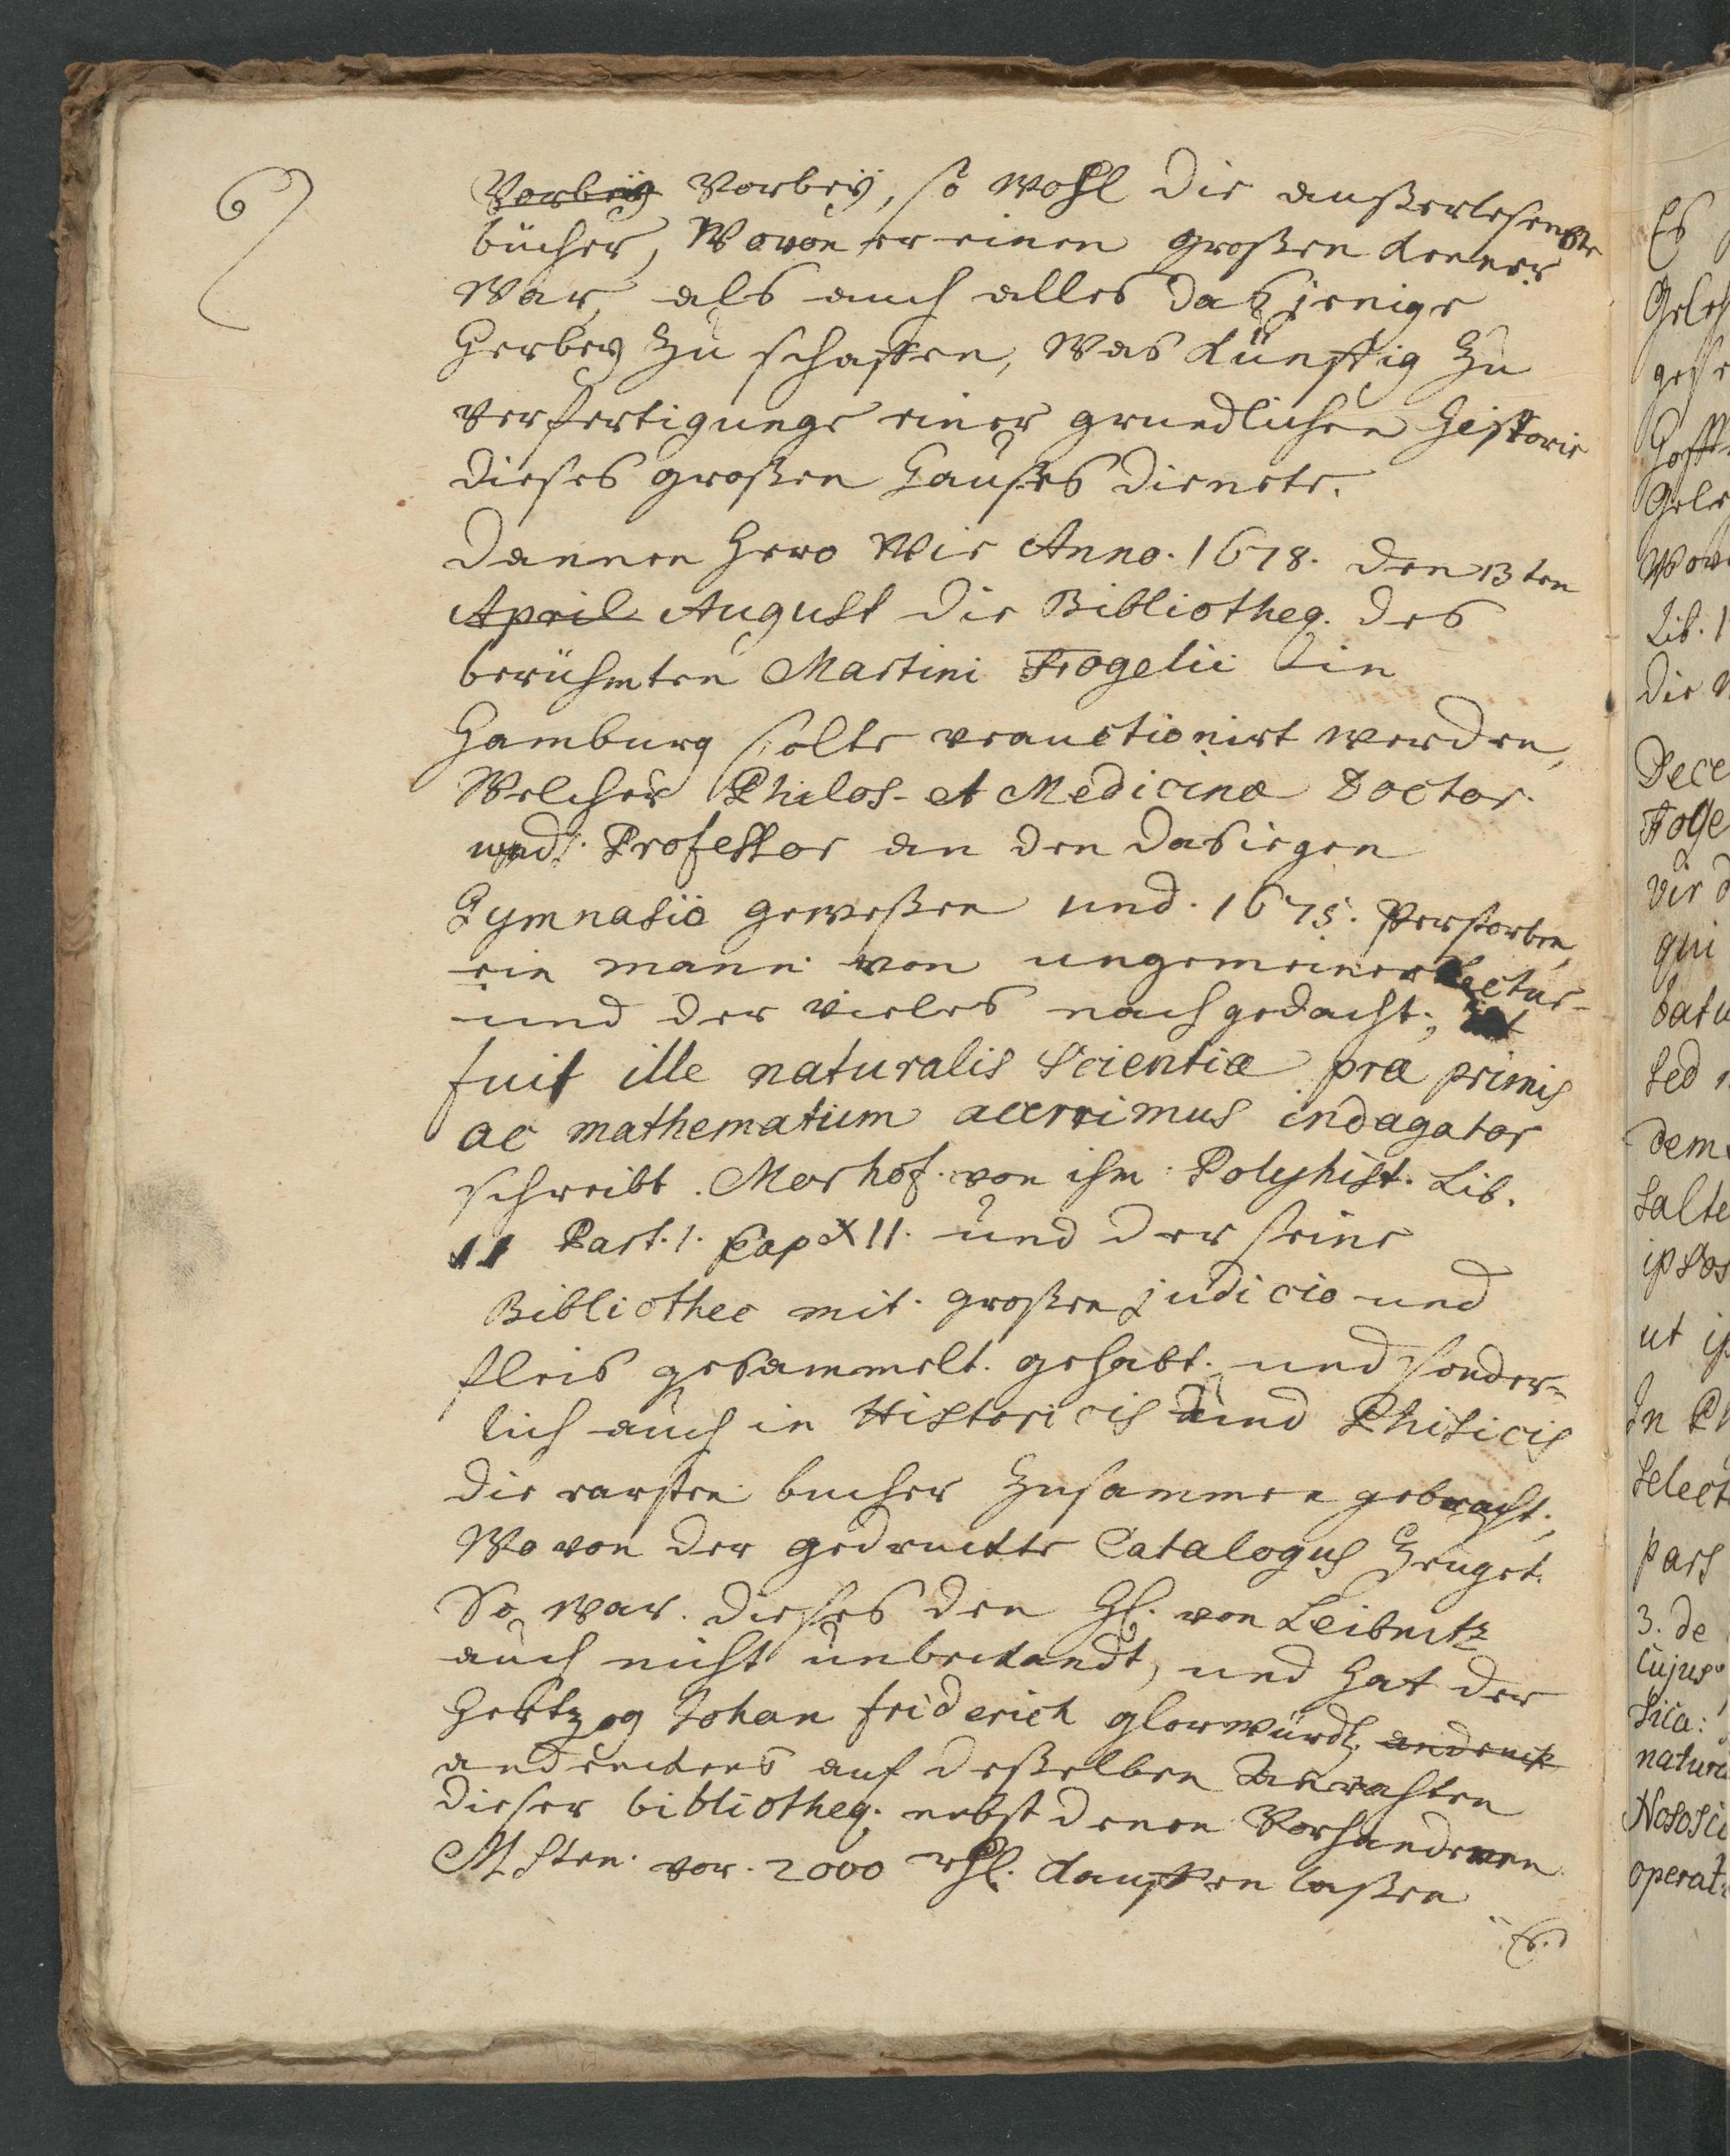 6
Vorbeÿ Vorbeÿ, so wohl die außerlesenste
bücher, Wovon er einen großen Kenner
War, als auch alles das jenige
Herbey zu schaffen, Was Künfftig zu
verfertigunge einer grundlichen Historie
dieses großen Haußes dienete.
Dannen Hero Wie Anno. 1678. den 13ten
April August die Bibliotheq. des
berühmten Martini Fogelii in
Hamburg solte verauctionirt werden,
Welcher Philos- et Medicinæ Doctor
und Professor an den dasiegen
Gymnasio geweßen und. 1675. Verstorben,
ein mann von ungemeiner Lectur-
und der vieles nachgedacht;
fuit ille naturalis Scientiæ præ primis
ac mathematium acerrimus indagator
schreibt. Morhof. von ihm Polyhist. Lib.
11 Part. 1. Cap XII. und der seine
Bibliothec mit großen judicio und
fleis gesammelt. gehabt. und sonder-
lich auch in Historicis und Phisicis
die rarsten bucher Zusammen gebracht;
Wovon der gedruckte Catalogus Zeuget.
So war. dieses den H. von Leibnitz
auch nicht unbekandt, und hat der
Hertzog Johan friderich glorwürd. andenck
andenckens auf deßelben Anrahten
dieser bibliotheq; nebst denen Vorhandenen
MSten. vor. 2000 rthl. Kauffen laßen
Es
Es
Geleh
gese
Hoff
Gele
Wov
Lib. 1
die
Dece
Foge
vir d
qui
batu
sed
dem
salte
ipsos
ut ip
In Ph
select
pars
3. de
cujus
sica:
natura
Nososc
operat